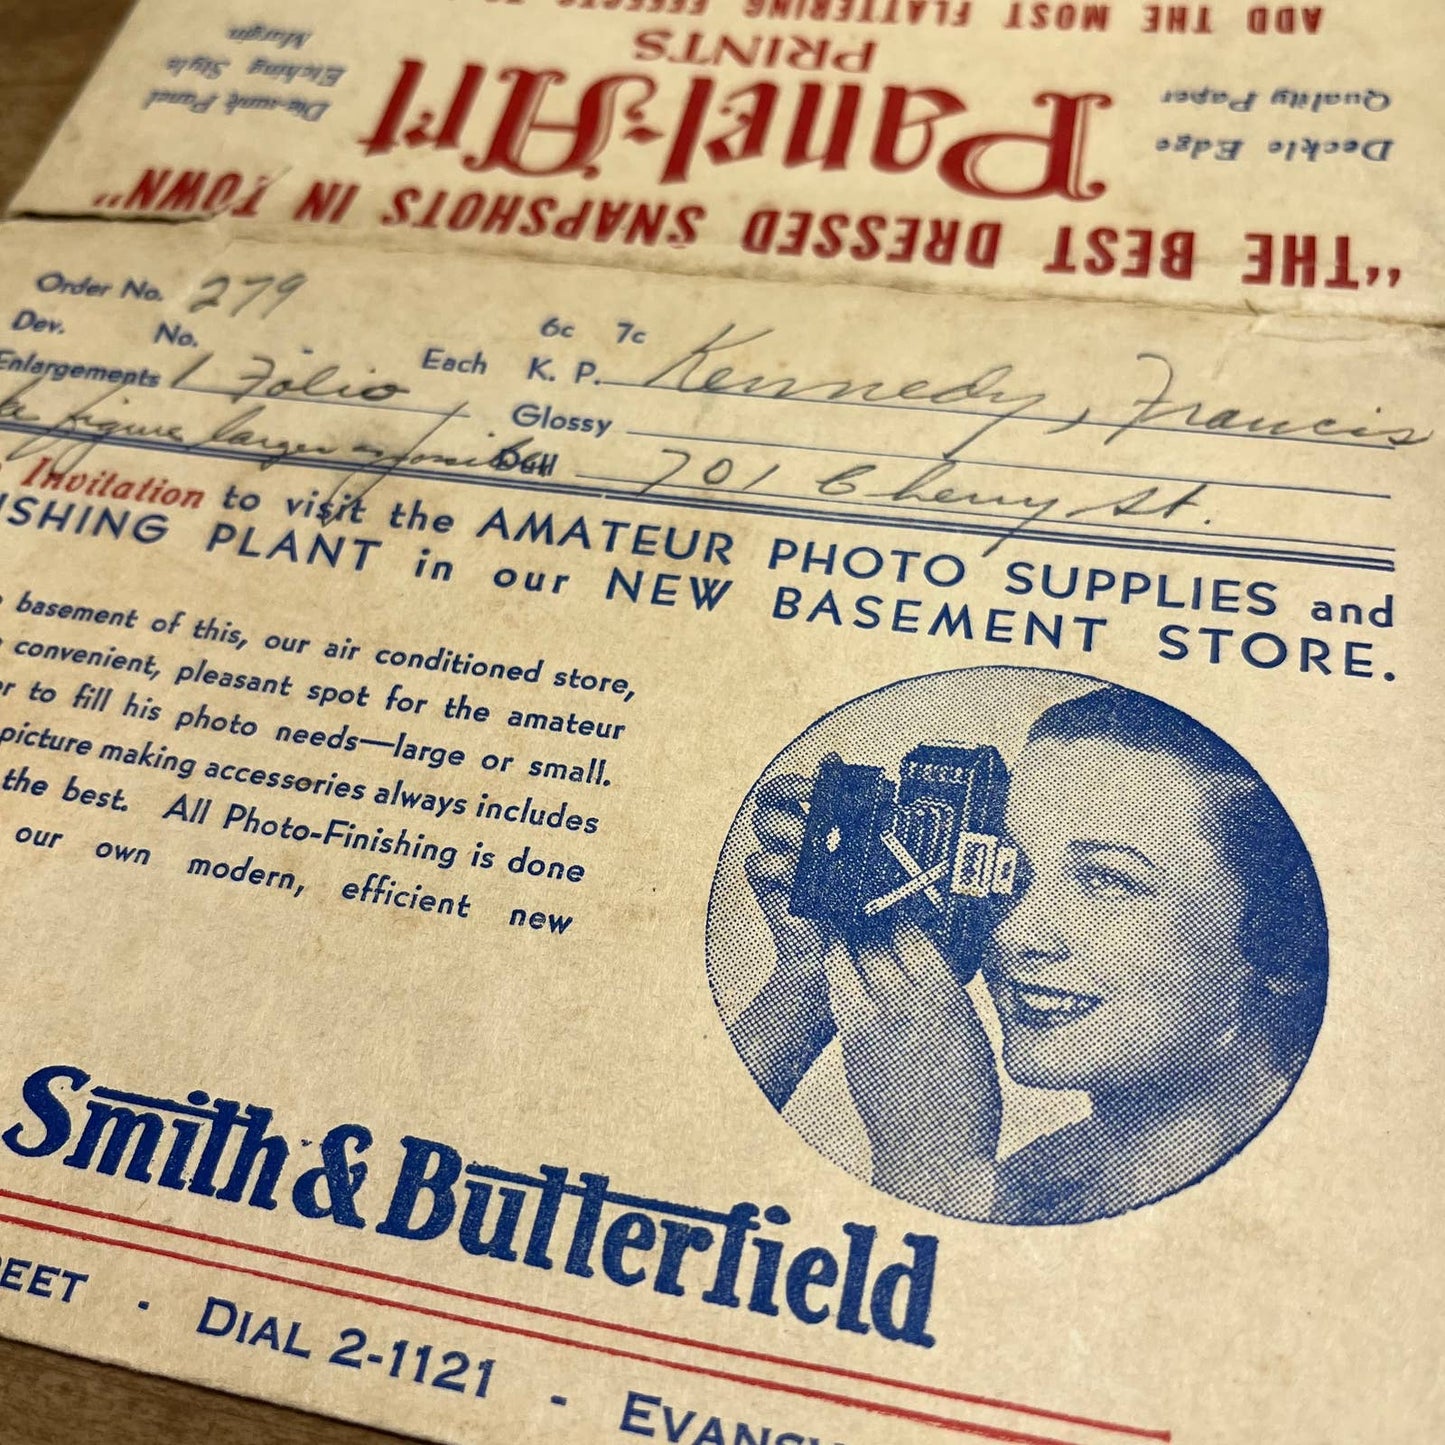 ADD THE MOST FLATTERING EFFECTS
Deckle Edge
Quality Paper
Panel-Art
PRINTS
Die-sunk Panel
Etching Style
Margin
"THE BEST DRESSED SNAPSHOTS IN TOWN"
Order No. 279
Dev. No. Each 6c 7c
Enlargements 1 Folio K. P. Kennedy, Francis
figure larger as possible Glossy
Dull 701 Cherry St.
Invitation to visit the AMATEUR PHOTO SUPPLIES and
ISHING PLANT in our NEW BASEMENT STORE.
basement of this, our air conditioned store,
convenient, pleasant spot for the amateur
r to fill his photo needs—large or small.
picture making accessories always includes
the best. All Photo-Finishing is done
our own modern, efficient new
Smith & Butterfield
REET · DIAL 2-1121 - EVANSV